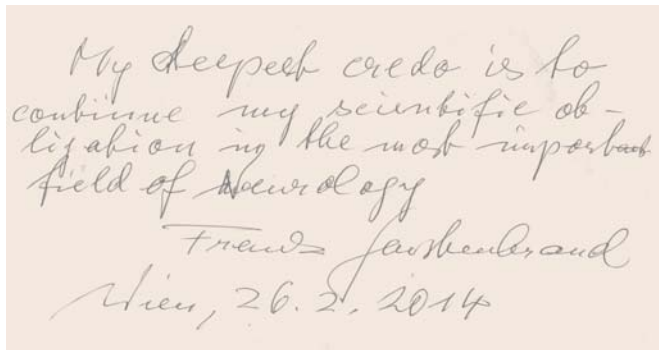 My deepest credo is to
continue my scientific ob-
ligation in the most important
field of Neurology
Franz Gerstenbrand
Wien, 26.2.2014